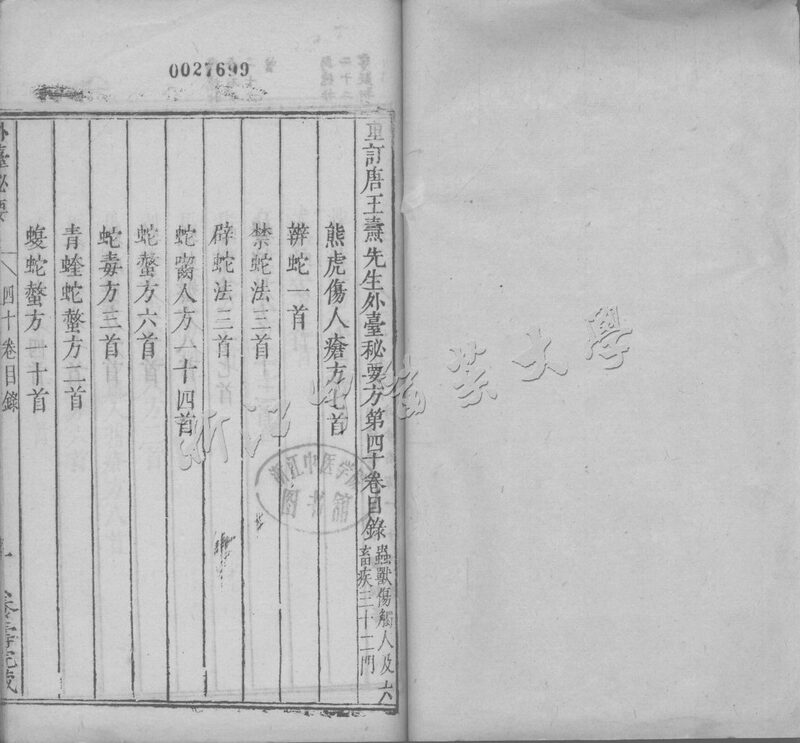 0027699
重訂唐王燾先生外臺秘要方第四十卷目錄
蟲獸傷觸人及六
畜疾三十二門
熊虎傷人瘡方七首
辨蛇一首
禁蛇法三首
辟蛇法三首
蛇嚙人方一十四首
蛇螫方六首
蛇毒方三首
青蝰蛇螫方二首
蝮蛇螫方一十首
外臺秘要
四十卷目錄
一
浙江中醫藥大學